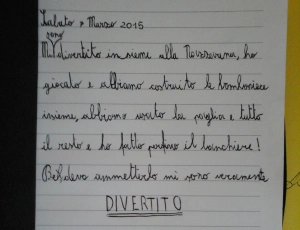 Sabato 7 Marzo 2015
sono
M divertito insieme alla Novarena, ho
giocato e abbiamo costruito le bomboniere
insieme, abbiamo usato la paglia e tutto
il resto e ho fatto perfino il tanchiere!
Beh devo ammetterlo mi sono veramente
DIVERTITO